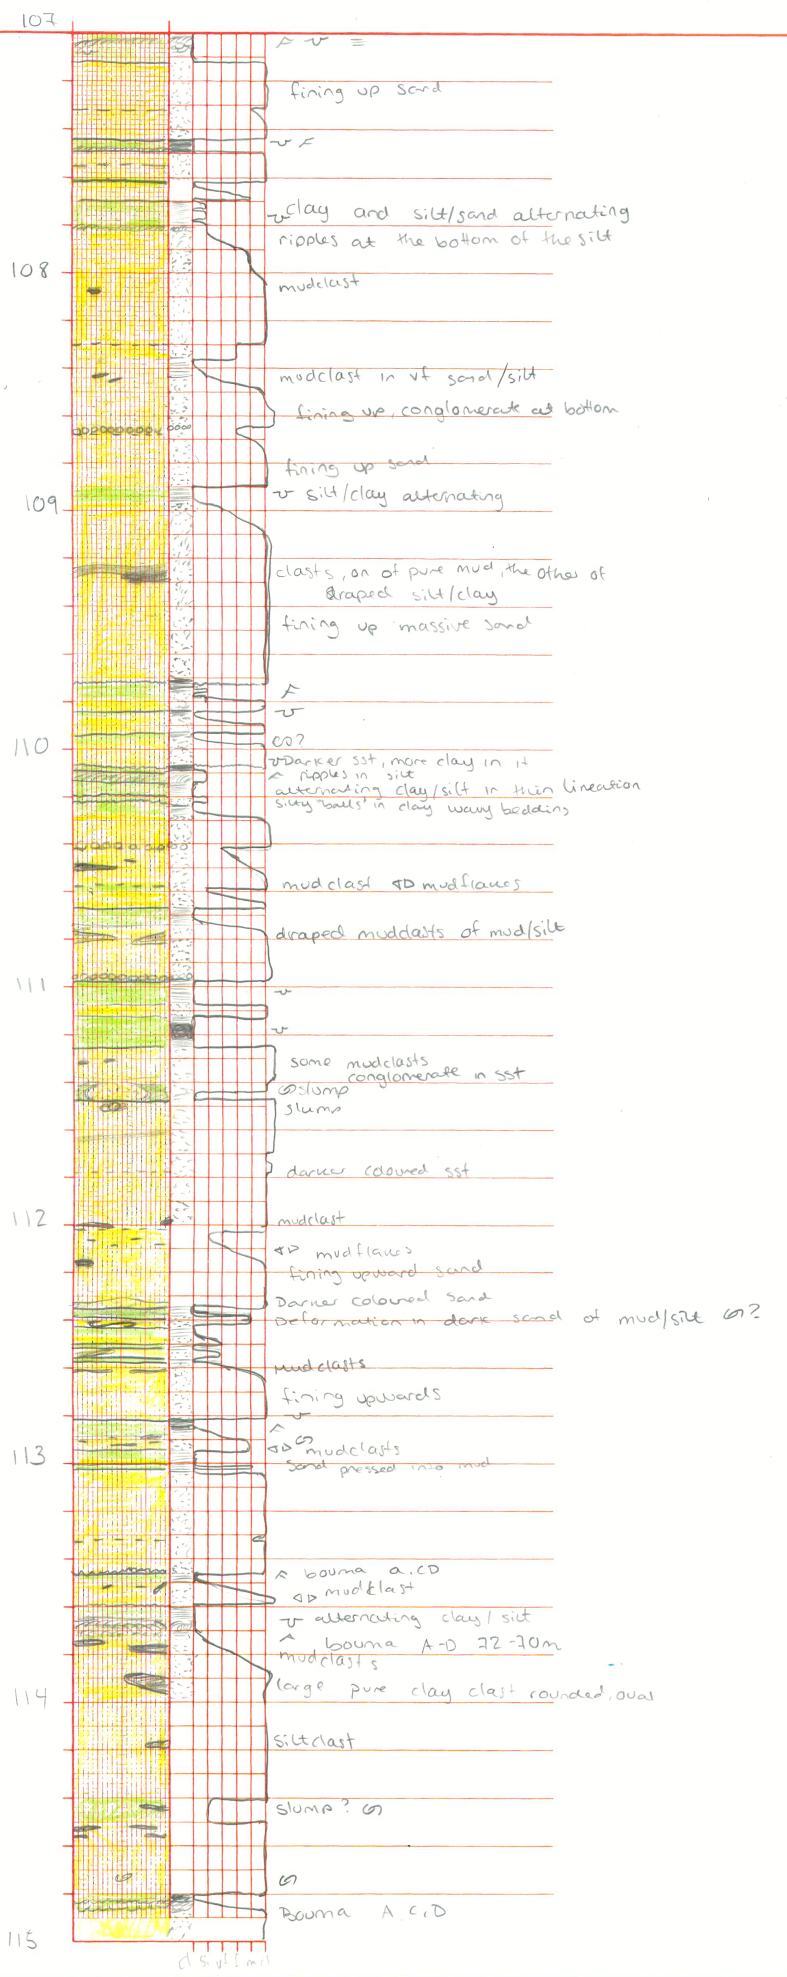 107
fining up sand
clay and silt/sand alternating
ripples at the bottom of the silt
108
mudclast
mudclast in vf sand/silt
fining up, conglomerate at bottom
fining up sand
silt/clay alternating
109
clasts, on of pure mud, the other of
draped silt/clay
fining up massive sand
110
Darker sst, more clay in it
ripples in silt
alternating clay/silt in thin lineation
silty "balls" in clay wavy bedding
mudclast mudflakes
draped mudclasts of mud/silt
111
some mudclasts
conglomerate in sst
slump
slump
darker coloured sst
112
mudclast
mudflakes
fining upward sand
Darker coloured sand
Deformation in dark sand of mud/silt ?
mudclasts
fining upwards
mudclasts
113
Sand pressed into mud
bouma a.CD
mudclast
alternating clay/silt
bouma A-D 72-70m
mudclasts
large pure clay clast rounded, oval
114
siltclast
slump?
Bouma A.C.D
115